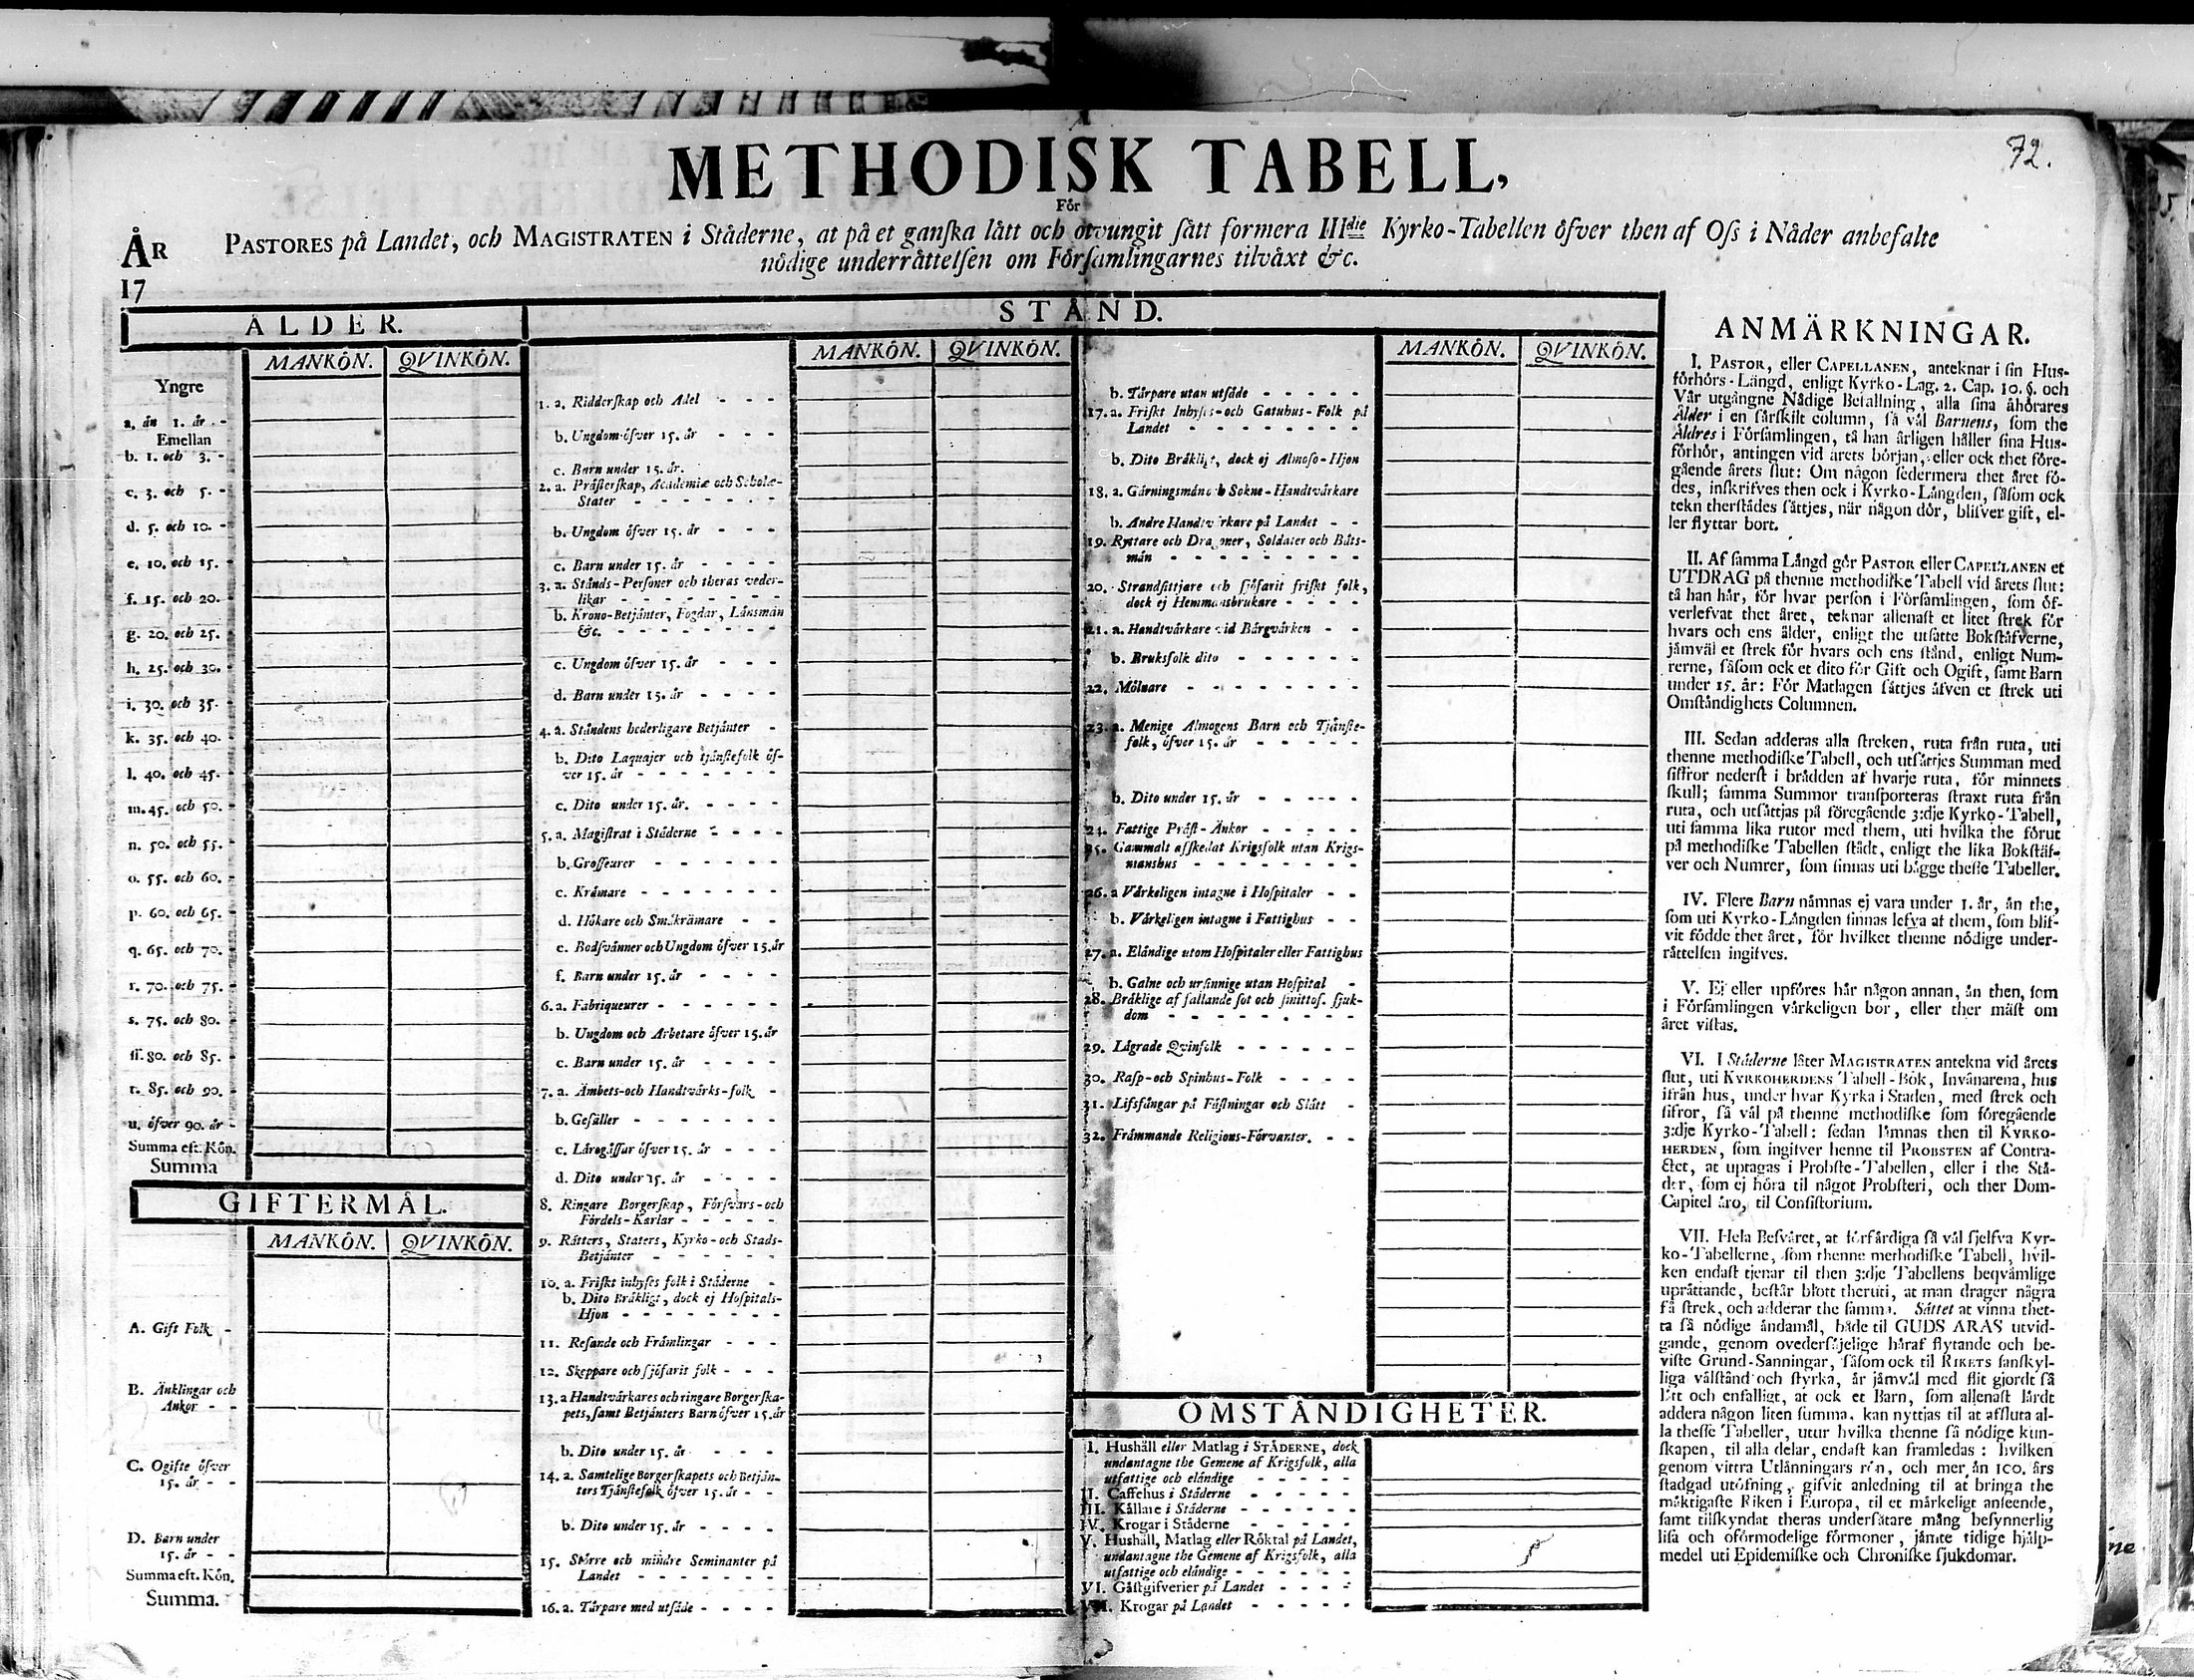 72.
METHODISK TABELL,
För
ÅR
17
PASTORES på Landet, och MAGISTRATEN i Städerne, at på et ganſka lätt och otvungit ſätt formera IIIdie Kyrko-Tabellen öfver then af Oſs i Nåder anbefalte
nödige underrättelſen om Förſamlingarnes tilväxt &c.
ÅLDER.
MANKÖN. QVINKÖN.
Yngre
a. än 1. år -
Emellan
b. 1. och 3. -
c. 3. och 5. -
d. 5. och 10. -
e. 10. och 15. -
f. 15. och 20. -
g. 20. och 25. -
h. 25. och 30. -
i. 30. och 35. -
k. 35. och 40. -
l. 40. och 45. -
m. 45. och 50. -
n. 50. och 55. -
o. 55. och 60. -
p. 60. och 65. -
q. 65. och 70. -
r. 70. och 75. -
s. 75. och 80. -
ſſ. 80. och 85. -
t. 85. och 90. -
u. öfver 90. år -
Summa eft. Kön.
Summa
GIFTERMÅL.
MANKÖN. QVINKÖN.
A. Gift Folk -
B. Änklingar och
Änkor - -
C. Ogifte öfver
15. år - -
D. Barn under
15. år - -
Summa eft. Kön.
Summa.
STÅND.
MANKÖN. QVINKÖN.
1. a. Ridderſkap och Adel - - -
b. Ungdom öfver 15. år - - -
c. Barn under 15. år.
2. a. Präſterſkap, Academiæ och Scholæ-
Stater - - - - - -
b. Ungdom öfver 15. år - - -
c. Barn under 15. år - - - -
3. a. Stånds-Perſoner och theras veder-
likar - - - - - - -
b. Krono-Betjänter, Fogdar, Länsmän
&c. - - - - - - -
c. Ungdom öfver 15. år - - -
d. Barn under 15. år - - - -
4. a. Ståndens hederligare Betjänter -
b. Dito Laquajer och tjänſtefolk öf-
ver 15. år - - - - - - -
c. Dito under 15. år. - - - -
5. a. Magiſtrat i Städerne - - - -
b. Groſſeurer - - - - - -
c. Krämare - - - - - - -
d. Hökare och Småkrämare - -
e. Bodſvänner och Ungdom öfver 15. år
f. Barn under 15. år - - - -
6. a. Fabriqueurer - - - - - -
b. Ungdom och Arbetare öfver 15. år
c. Barn under 15. år - - - -
7. a. Ämbets-och Handtvärks-folk -
b. Geſäller - - - - - - -
c. Lärogåſſar öfver 15. år - - -
d. Dito under 15. år - - - -
8. Ringare Borgerſkap, Förſvars-och
Fördels-Karlar - - - - -
9. Rätters, Staters, Kyrko-och Stads-
Betjänter - - - - - -
10. a. Friſkt inhyſes folk i Städerne -
b. Dito Bräkligt, dock ej Hoſpitals-
Hjon - - - - - - -
11. Reſande och Främlingar - - -
12. Skeppare och ſjöfarit folk - - -
13. a Handtvärkares och ringare Borgerſka-
pets, ſamt Betjänters Barn öfver 15. år
b. Dito under 15. år - - - -
14. a. Samtelige Borgerſkapets och Betjän-
ters Tjänſtefolk öfver 15. år - -
b. Dito under 15. år - - - -
15. Större och mindre Seminanter på
Landet - - - - - - -
16. a. Tårpare med utſäde - - - -
MANKÖN. QVINKÖN.
b. Tårpare utan utſäde - - - - -
17. a. Friſkt Inhyſes-och Gatuhus-Folk på
Landet - - - - - - - -
b. Dito Bräkligt, dock ej Almoſo-Hjon
18. a. Gärningsmän och Sokne-Handtvärkare
b. Andre Handtvärkare på Landet - -
19. Ryttare och Dragoner, Soldater och Båts-
män - - - - - - - - -
20. Strandſittjare och ſjöfarit friſkt folk,
dock ej Hemmansbrukare - - - -
21. a. Handtvärkare vid Bärgvärken - -
b. Bruksfolk dito - - - - - -
22. Mölnare - - - - - - - -
23. a. Menige Almogens Barn och Tjänſte-
folk, öfver 15. år - - - - -
b. Dito under 15. år - - - - -
24. Fattige Präſt-Änkor - - - - -
25. Gammalt afſkedat Krigsfolk utan Krigs-
manshus - - - - - - - -
26. a Värkeligen intagne i Hoſpitaler - -
b. Värkeligen intagne i Fattighus - -
27. a. Eländige utom Hoſpitaler eller Fattighus
b. Galne och urſinnige utan Hoſpital -
28. Bräklige af fallande ſot och ſmittoſ. ſjuk-
dom - - - - - - - -
29. Lägrade Qvinfolk - - - - - -
30. Raſp-och Spinhus-Folk - - - -
31. Lifsfångar på Fäſtningar och Slått -
32. Främmande Religions-Förvanter. - -
OMSTÄNDIGHETER.
I. Hushåll eller Matlag i STÄDERNE, dock
undantagne the Gemene af Krigsfolk, alla
utfattige och eländige - - - - -
II. Caffehus i Städerne - - - - -
III. Källare i Städerne - - - - -
IV. Krogar i Städerne - - - - -
V. Hushåll, Matlag eller Röktal på Landet,
undantagne the Gemene af Krigsfolk, alla
utfattige och eländige - - - - - -
VI. Gäſtgifverier på Landet - - - -
VII. Krogar på Landet - - - - -
ANMÄRKNINGAR.
I. PASTOR, eller CAPELLANEN, anteknar i ſin Hus-
förhörs-Längd, enligt Kyrko-Lag. 2. Cap. 10. §. och
Vår utgångne Nådige Befallning, alla ſina åhörares
Ålder i en ſärſkilt column, ſå väl Barnens, ſom the
Äldres i Förſamlingen, tå han årligen håller ſina Hus-
förhör, antingen vid årets början, eller ock thet före-
gående årets ſlut: Om någon ſedermera thet året fö-
des, inſkrifves then ock i Kyrko-Längden, ſåſom ock
tekn therſtädes ſättjes, när någon dör, blifver gift, el-
ler flyttar bort.
II. Af ſamma Längd gör PASTOR eller CAPELLANEN et
UTDRAG på thenne methodiſke Tabell vid årets ſlut:
tå han här, för hvar perſon i Förſamlingen, ſom öf-
verlefvat thet året, teknar allenaſt et litet ſtrek för
hvars och ens ålder, enligt the utſatte Bokſtäfverne,
jämväl et ſtrek för hvars och ens ſtånd, enligt Num-
rerne, ſåſom ock et dito för Gift och Ogift, ſamt Barn
under 15. år: För Matlagen ſättjes äfven et ſtrek uti
Omſtändighets Columnen.
III. Sedan adderas alla ſtreken, ruta från ruta, uti
thenne methodiſke Tabell, och utſättjes Summan med
ſiffror nederſt i brädden af hvarje ruta, för minnets
ſkull; ſamma Summor transporteras ſtraxt ruta från
ruta, och utſättjas på föregående 3:dje Kyrko-Tabell,
uti ſamma lika rutor med them, uti hvilka the förut
på methodiſke Tabellen ſtådt, enligt the lika Bokſtäf-
ver och Numrer, ſom finnas uti bägge theſſe Tabeller.
IV. Flere Barn nämnas ej vara under 1. år, än the,
ſom uti Kyrko-Längden finnas lefva af them, ſom blif-
vit födde thet året, för hvilket thenne nödige under-
rättelſen ingifves.
V. Ej eller upföres här någon annan, än then, ſom
i Förſamlingen värkeligen bor, eller ther mäſt om
året viſtas.
VI. I Städerne låter MAGISTRATEN antekna vid årets
ſlut, uti KYRKOHERDENS Tabell-Bok, Invånarena, hus
ifrån hus, under hvar Kyrka i Staden, med ſtrek och
ſifror, ſå väl på thenne methodiſke ſom föregående
3:dje Kyrko-Tabell: ſedan lämnas then til KYRKO-
HERDEN, ſom ingifver henne til PROBSTEN af Contra-
ctet, at uptagas i Probſte-Tabellen, eller i the Stä-
der, ſom ej höra til något Probſteri, och ther Dom-
Capitel äro, til Conſiſtorium.
VII. Hela Beſväret, at förfärdiga ſå väl ſjelfva Kyr-
ko-Tabellerne, ſom thenne methodiſke Tabell, hvil-
ken endaſt tjenar til then 3:dje Tabellens beqvämlige
uprättande, beſtår blott theruti, at man drager några
få ſtrek, och adderar the ſamma. Sättet at vinna thet-
ta ſå nödige ändamål, både til GUDS ÄRAS utvid-
gande, genom overderſäjelige häraf flytande och be-
viſte Grund-Sanningar, ſåſom ock til RIKETS ſanſkyl-
liga välſtånd och ſtyrka, är jämväl med flit gjordt ſå
lätt och enfalligt, at ock et Barn, ſom allenaſt lärdt
addera någon liten ſumma, kan nyttjas til at affluta al-
la theſſe Tabeller, utur hvilka thenne ſå nödige kun-
ſkapen, til alla delar, endaſt kan framledas: hvilken
genom vittra Utlänningars rön, och mer än 100. års
ſtadgad utöfning, gifvit anledning til at bringa the
mäktigaſte Riken i Europa, til et märkeligt anſeende,
ſamt tilſkyndat theras underſåtare mång beſynnerlig
liſa och oförmodelige förmoner, jämte tidige hjälp-
medel uti Epidemiſke och Chroniſke ſjukdomar.